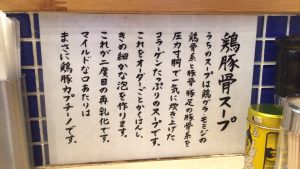 鶏豚骨スープ
うちのスープは鶏ガラ モミジの
鶏骨系と豚骨 豚足の豚骨系を
圧力寸胴で一気に炊き上げた、
コラーゲンたっぷりのスープです。
これをオーダーごとにかくはんし、
きめ細かな泡を作ります。
これが二度目の再乳化です。
マイルドな口あたりは
まさに鶏豚カプチーノです。